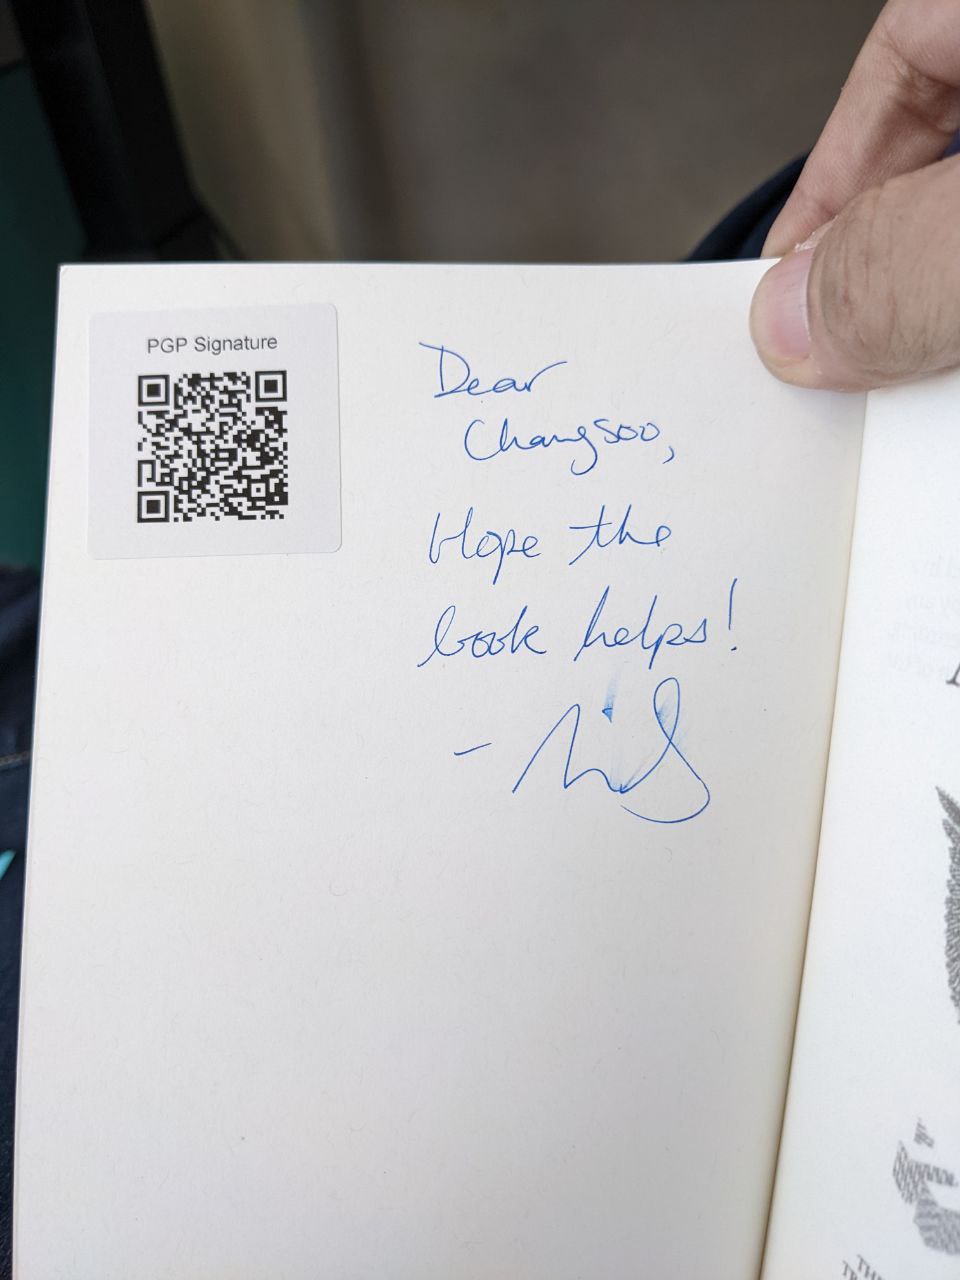 PGP Signature
Dear
Changsoo,
Hope the
book helps!